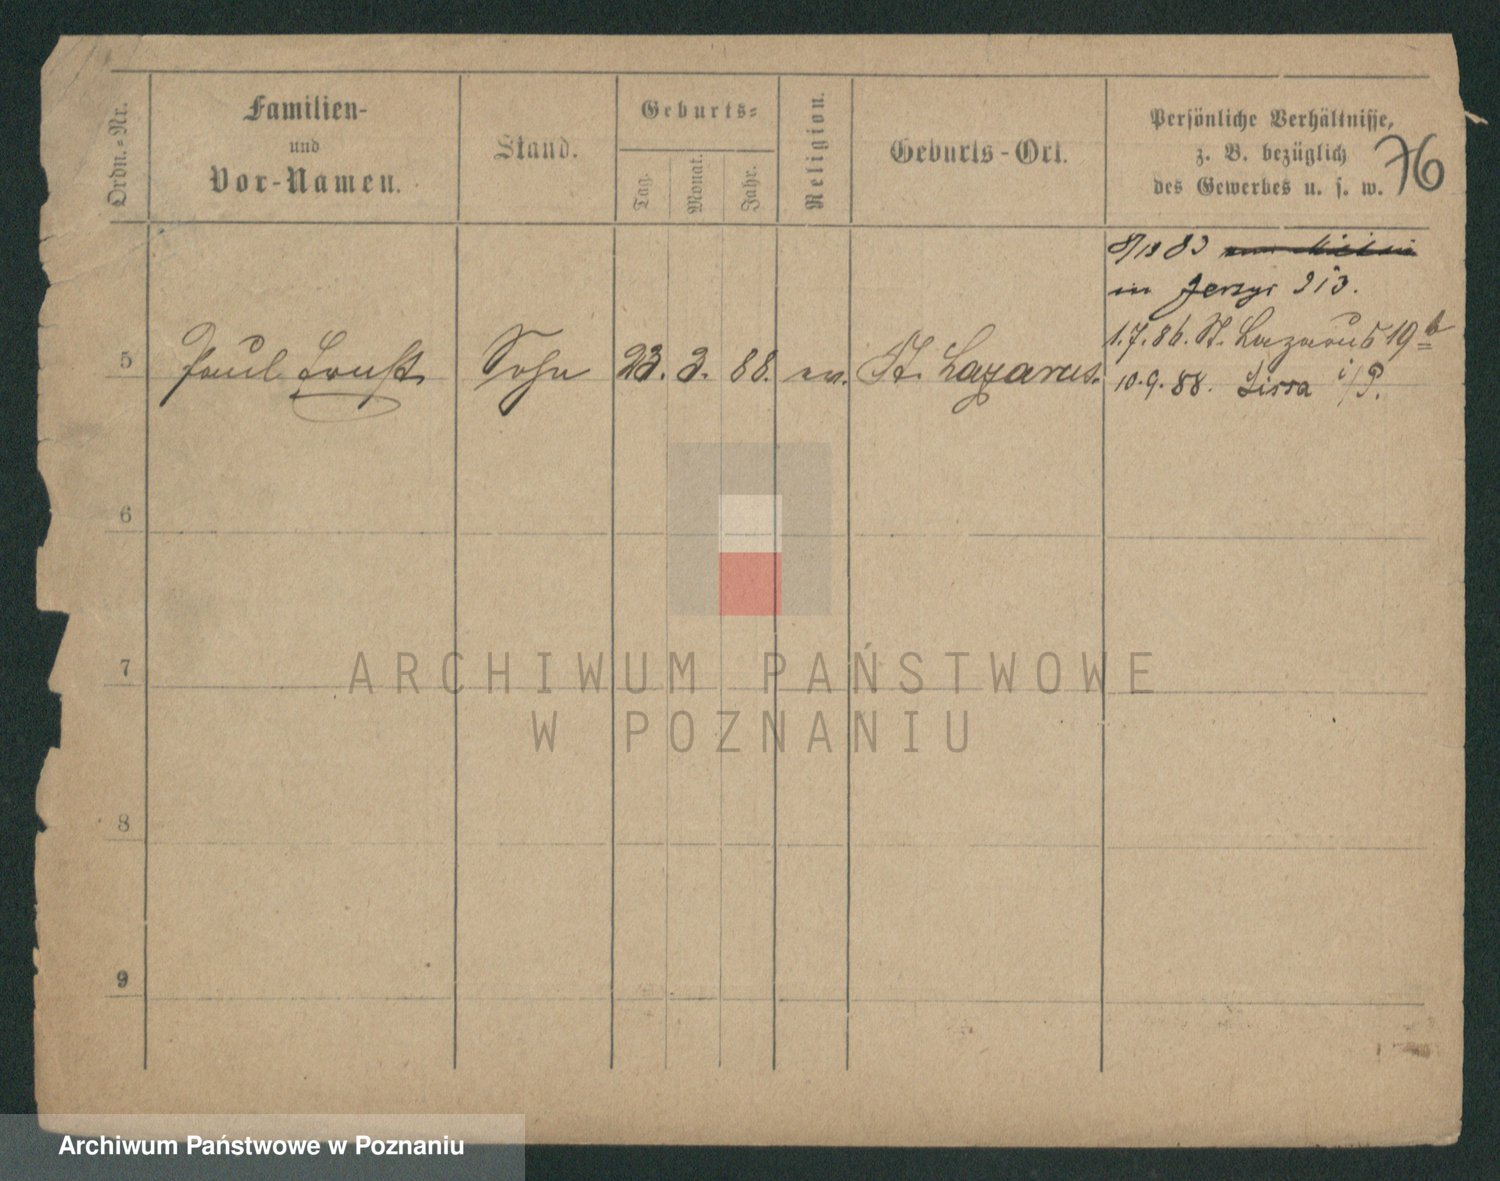 Ordn.-Nr.
Familien-
und
Vor-Namen.
Stand.
Geburts-
Tag.
Monat.
Jahr.
Religion.
Geburts-Ort.
Persönliche Verhältnisse,
z. B. bezüglich
des Gewerbes u. s. w.
76
83
in Jersyc 213.
1.7.86. St. Lazarus 19b
10.9.88. Lissa i/P.
5 Paul Ernst Sohn 23. 3. 88. ev. St. Lazarus.
6
7
8
9
ARCHIWUM PAŃSTWOWE
W POZNANIU
Archiwum Państwowe w Poznaniu